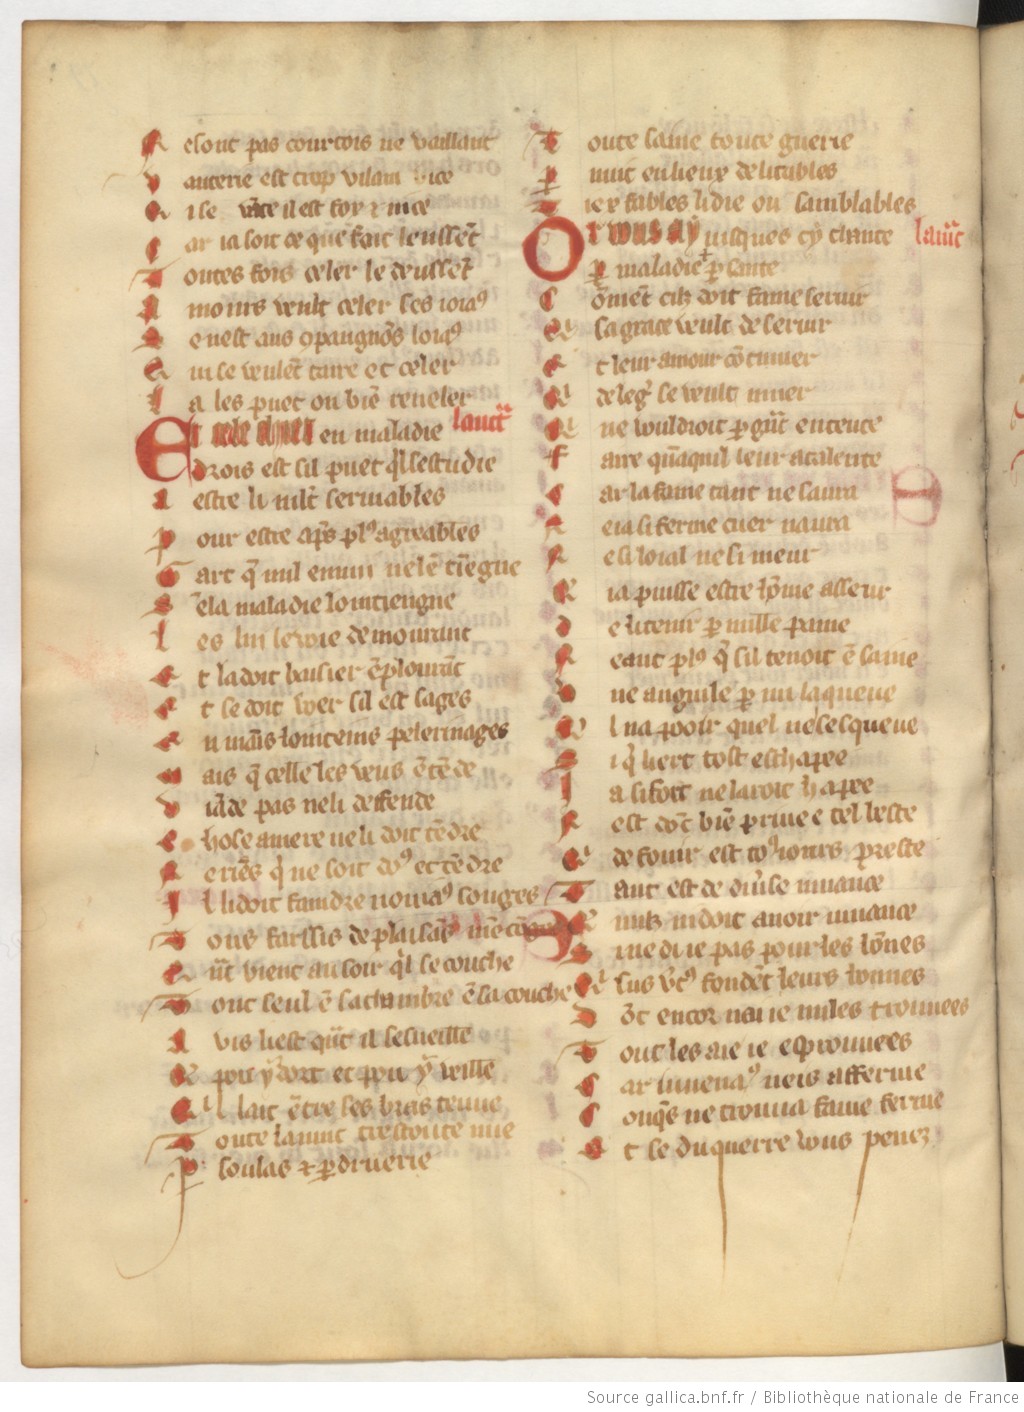 N esont pas courtois ne vaillant
V anterie est trop vilain vice
Q ise vante il est fox & nice
C ar ia soit ce que fait leussēt
T outes fois celer le deussēt
A mours veult celer ses ioiaꝰ
S e nest aus ꝯpaingnōs loiaꝰ
Q ui se veulēt taire et celer
L a les puet on biē reueler
Et cele chiet en maladie lauct
Drois est sil puet q̄l sestudie
A estre li mlt seruiables
P our estre ap̄s plꝰ agreables
G art q̄ nul ennui ne lē tiēgne
S ela maladie lointiengne
L es lui le voie demourant
E t la doit baisier ē plourāt
E t se doit voer sil est sages
E n mais lointeins pelerinages
M ais q̄ celle les veus ētēde
V iāde pas ne li deffende
C hose amere ne li doit tēdre
N e riēs q̄ ne soit dous et tēdre
S i li doit faindre nouuiaꝰ songes
T ous farssis de plaisās mēcōges
Q ūt vient au soir q̄l se couche
T out seul ē sa chambre ē la couche
A vis li est q̄nt il se sueille
Q pou y dort et pou y veille
Q l lait ētre ses bras tenue
T oute la nuit trestoute nue
P soulas & p̄ druerie
T oute saine toute guerie
P nuit en lieux delitables
T iex fables li die ou samblables
Or vous ay iusques cy chante lauct
p̄ maladie p̄ sante
C ōmēt cilz doit fame seruir
Q sa grace veult deseruir
E t leur amour cōtinuer
Q de leg̃ se veult muer
Q ne vouldroit p̄ grāt entente
F aire quāquil leur atalente
C ar la fame tant ne saura
N e ia si ferme cuer naura
N e si loial ne si meur
Q ia puisse estre hōme asseur
D e li tenir p̄ nulle paine
N eant plꝰ q̄ sil tenoit ē saine
V ne anguile p̄ mi la queue
Q l na pooir quel ne sesqueue
S i q̄ liert tost eschapee
J a si fort ne laroit hapee
N est dōc biē priuee tel beste
Q de fouir est toꝰiours preste
T ant est de diuīse muance
Q nulz ni doit auoir fiuance
S i ne di ie pas pour les bōnes
Q sus v̄tꝰ fondēt leurs bonnes
D ōt encor nai ie nules trouuees
T out les aie ie esprouuees
C ar iuuenaꝰ neis afferme
C onq̄s ne trouua fame ferme
E t se du querre vous penez
Source gallica.bnf.fr / Bibliothèque nationale de France